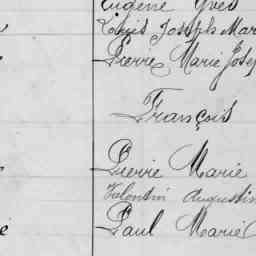 Eugène Yves
Louis Joseph Mar
Pierre Marie Josep
François
Pierre Marie
Valentin Augustin
Paul Marie